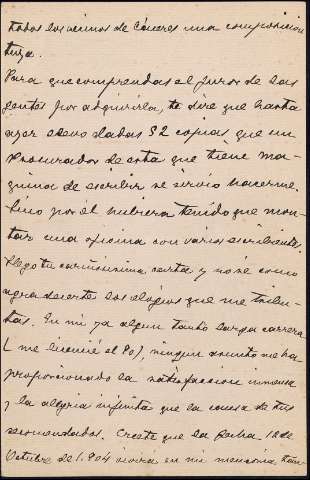 todos los vecinos de Cáceres una composicion
tuya.
Para que comprendas el furor de las
gentes por adquirirla, te dire que hasta
ayer llevo dadas 52 copias que un
Procurador de esta que tiene ma-
quina de escribir se sirvio hacerme.
Sino por él hubiera tenido que mon-
tar una oficina con varios escribientes.
Llego tu cariñosisima carta y no se como
agradecerte los elogios que me tribu-
tas. En mi ya algun tanto larga carrera
(me licencié el 90), ningun asunto me ha
proporcionado la satisfaccion inmensa
y la alegria infinita que la causa de tus
recomendados. Creete que la fecha 12 de
Octubre de 1.904 vivirá en mi memoria tan-